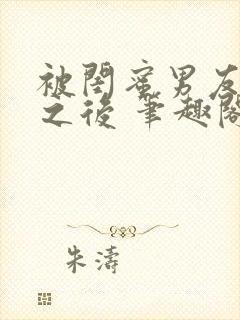 被閨蜜男友
之後 筆趣閣
朱濤